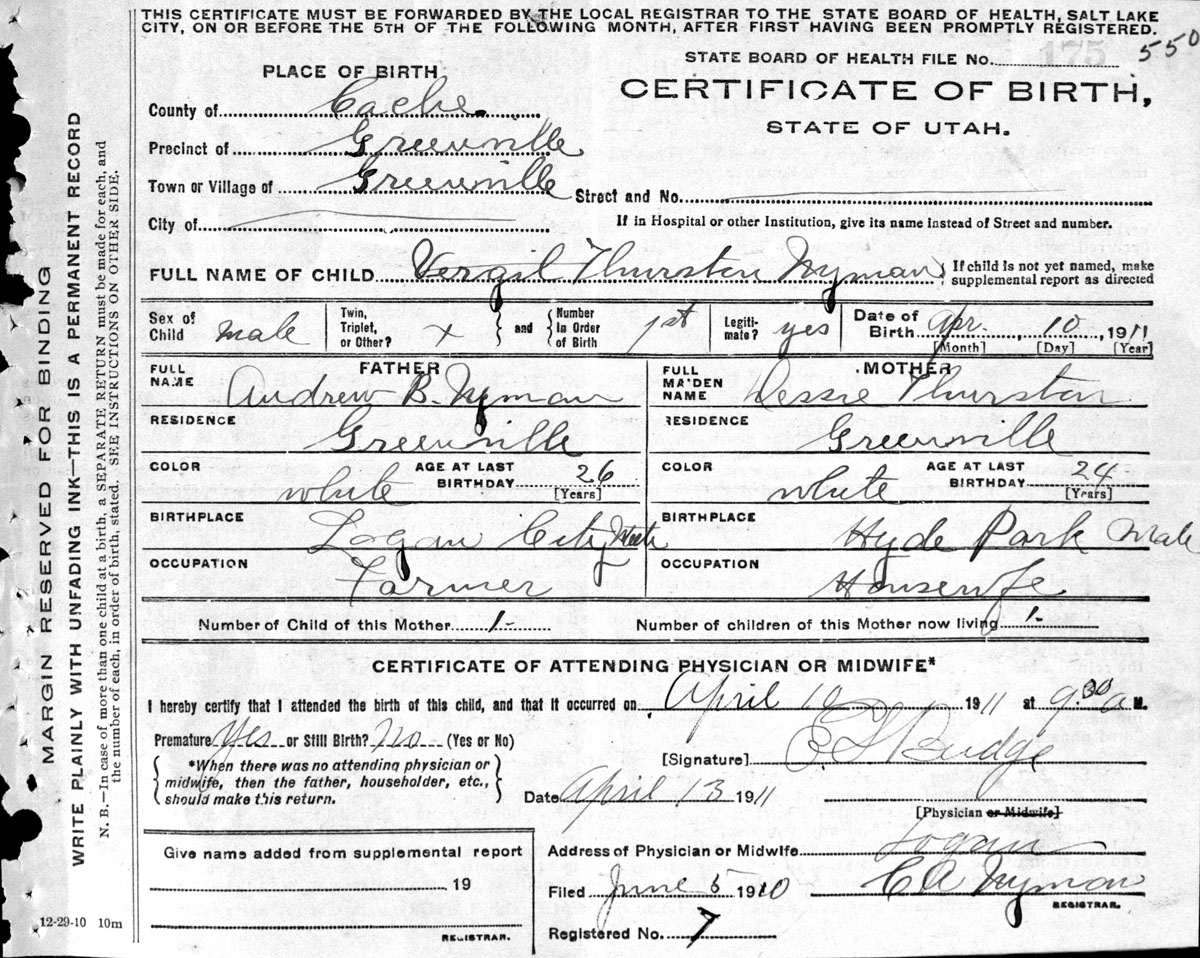 THIS CERTIFICATE MUST BE FORWARDED BY THE LOCAL REGISTRAR TO THE STATE BOARD OF HEALTH, SALT LAKE
CITY, ON OR BEFORE THE 5TH OF THE FOLLOWING MONTH, AFTER FIRST HAVING BEEN PROMPTLY REGISTERED.
STATE BOARD OF HEALTH FILE No. 175 550
PLACE OF BIRTH
CERTIFICATE OF BIRTH,
STATE OF UTAH.
County of Cache
Precinct of Greenville
Town or Village of Greenville Street and No.
City of If in Hospital or other Institution, give its name instead of Street and number.
FULL NAME OF CHILD Vergil Thurston Nyman If child is not yet named, make
supplemental report as directed
Sex of Child male Twin, Triplet, or Other? x and Number in Order of Birth 1st Legiti-mate? yes Date of Birth Apr. 10, 1911
[Month] [Day] [Year]
FATHER MOTHER
FULL NAME Andrew B. Nyman FULL MAIDEN NAME Dessie Thurston
RESIDENCE Greenville RESIDENCE Greenville
COLOR white AGE AT LAST BIRTHDAY 26 [Years] COLOR white AGE AT LAST BIRTHDAY 24 [Years]
BIRTHPLACE Logan City BIRTHPLACE Hyde Park
OCCUPATION Farmer OCCUPATION Housewife
Number of Child of this Mother 1- Number of children of this Mother now living 1-
CERTIFICATE OF ATTENDING PHYSICIAN OR MIDWIFE*
I hereby certify that I attended the birth of this child, and that it occurred on April 10 1911 at 9.30 a M.
Premature Yes or Still Birth? No (Yes or No)
[Signature] Budge
*When there was no attending physician or
midwife, then the father, householder, etc.,
should make this return.
Date April 13 1911
[Physician or Midwife]
Give name added from supplemental report
19
REGISTRAR.
Address of Physician or Midwife Logan
Filed June 5 1910 C A Nyman
REGISTRAR.
Registered No. 7
12-29-10 10m
MARGIN RESERVED FOR BINDING
WRITE PLAINLY WITH UNFADING INK—THIS IS A PERMANENT RECORD
N. B.—In case of more than one child at a birth, a SEPARATE RETURN must be made for each, and
the number of each, in order of birth, stated. SEE INSTRUCTIONS ON OTHER SIDE.